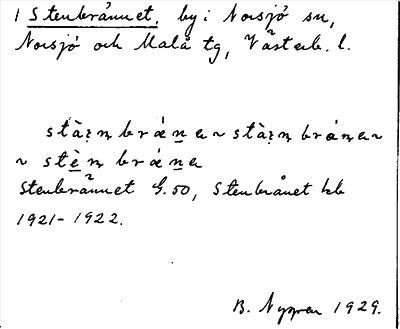 1 Stenbrånnet, by i Norsjö sn,
Norsjö och Malå tg, Västerb. l.
stàịn brána ~ stàịn brána ~
~ stèn brána
Stenbrånnet G.50, Stenbrånet kb
1921-1922.
B. 1929.